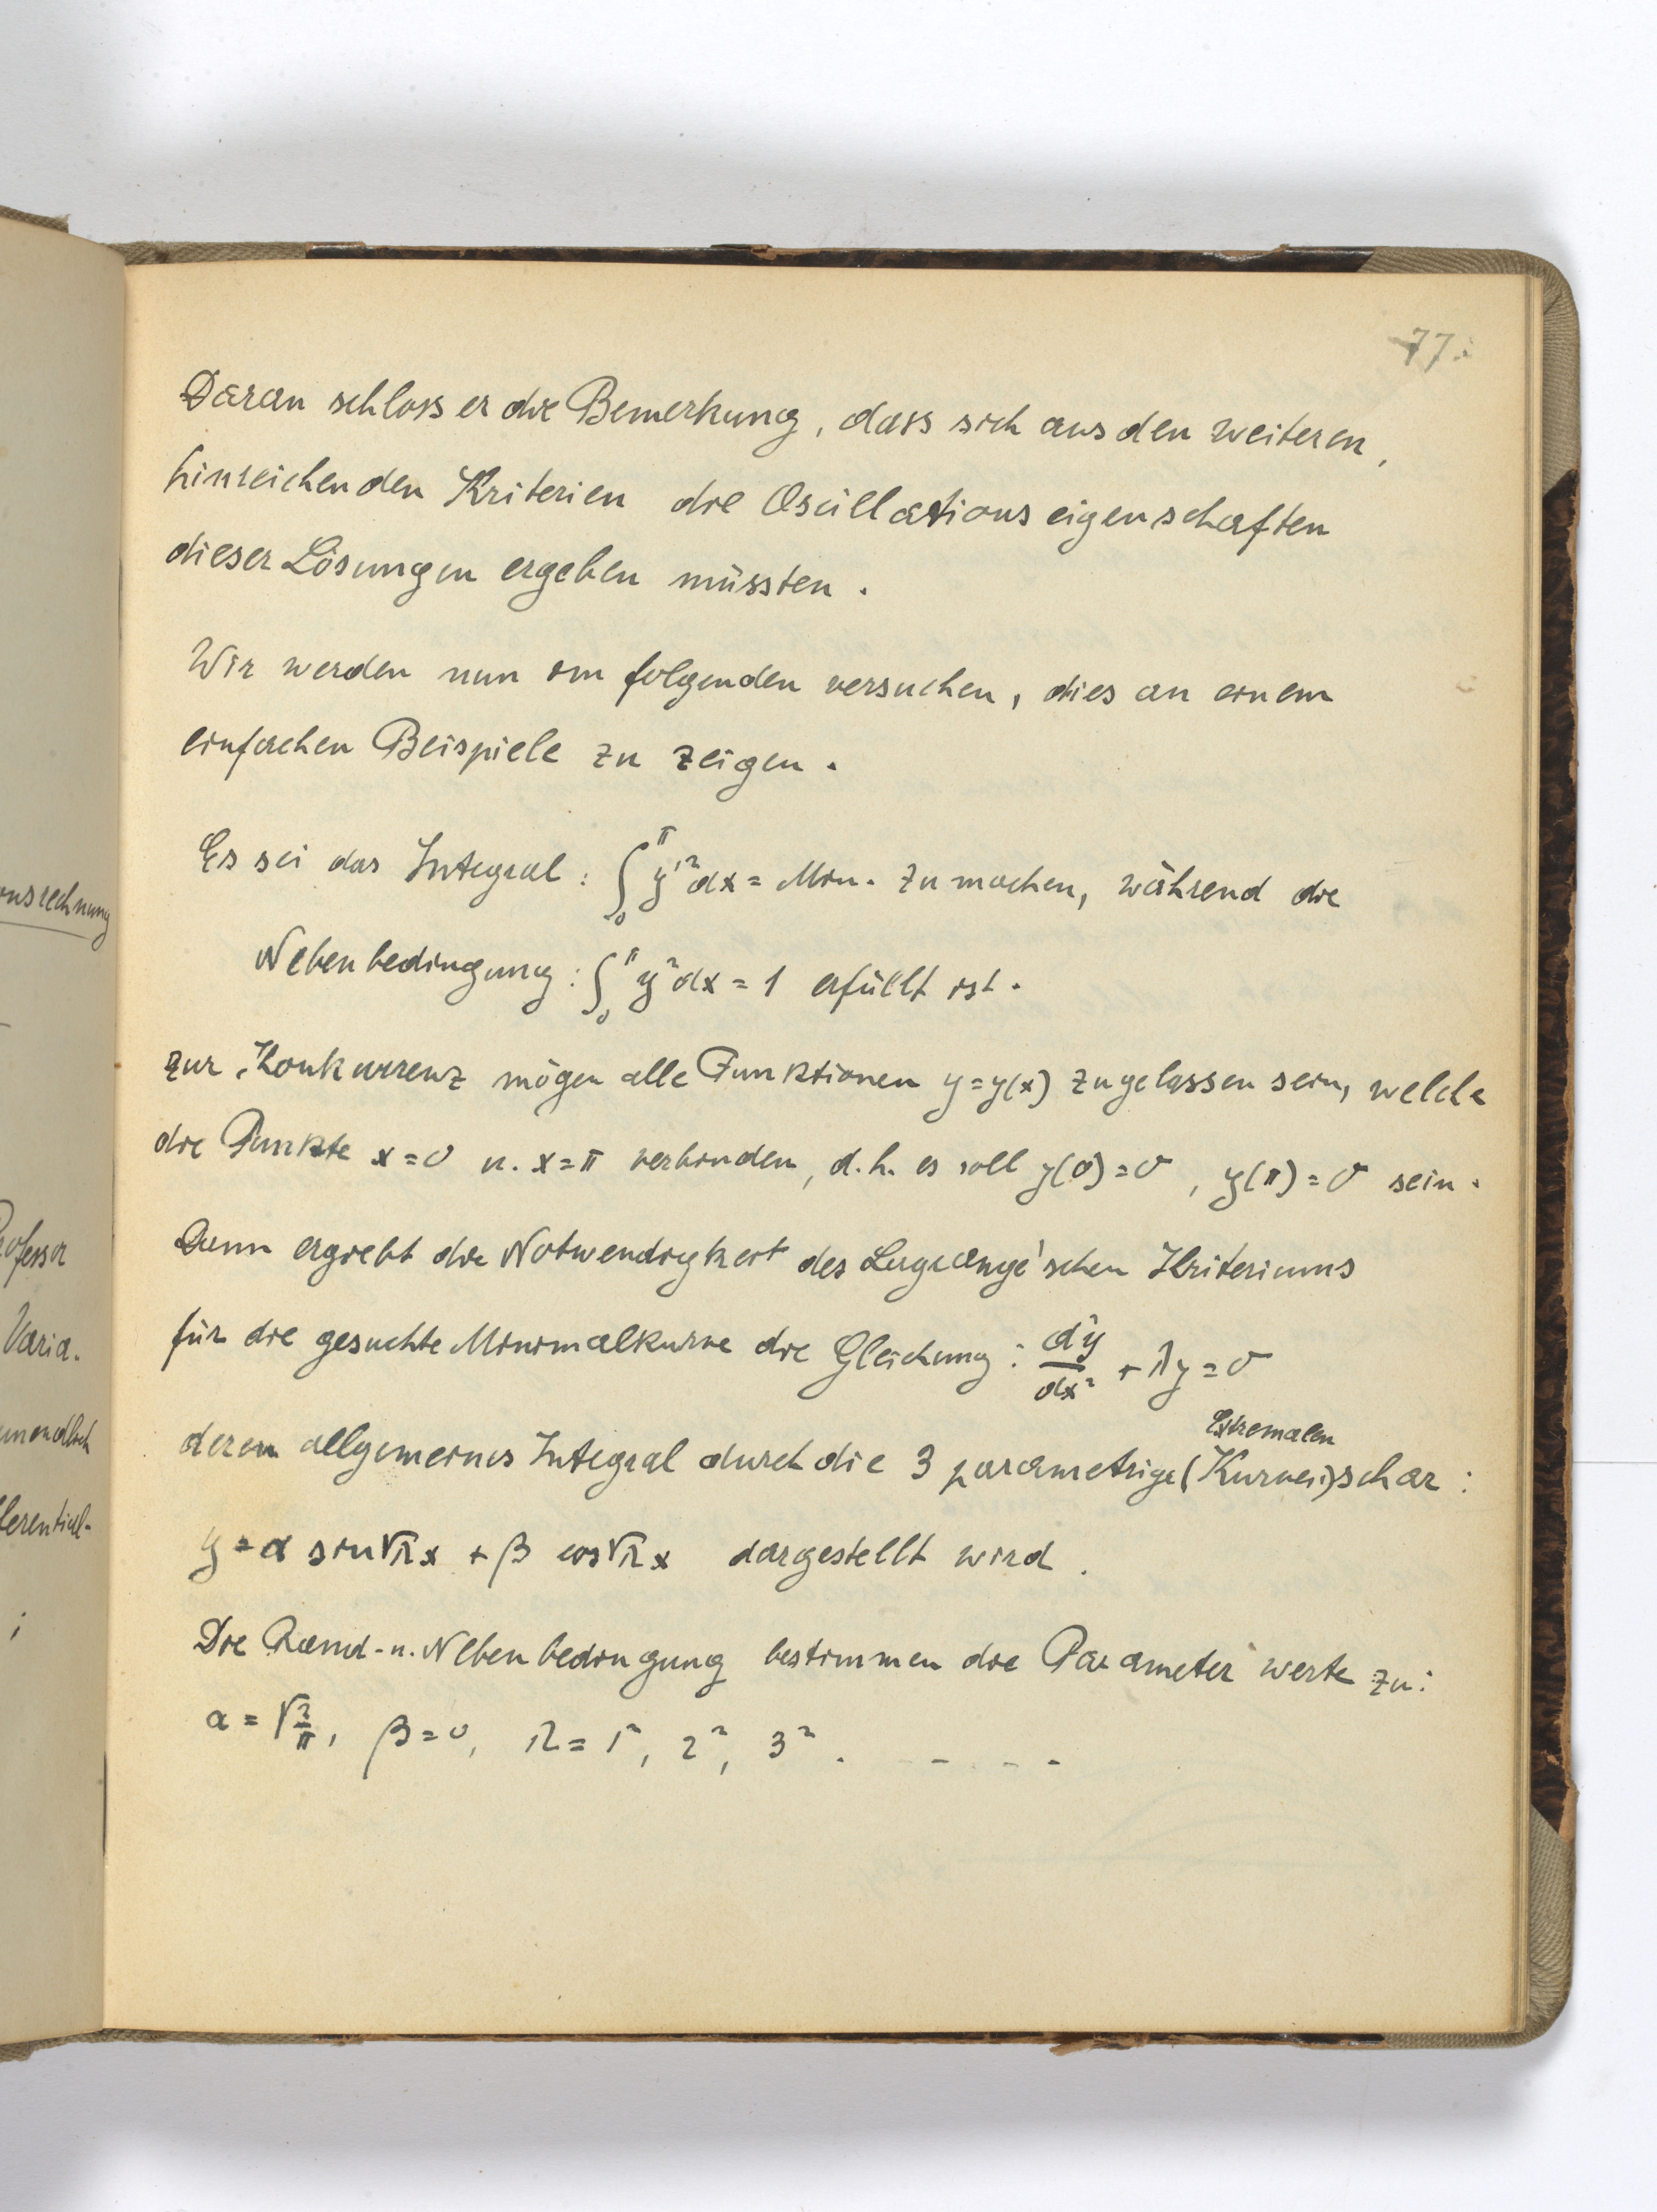 onsrechnung
Professor
Varia-
ferential-
;
77.
Daran schloss er die Bemerkung, dass sich aus den weiteren,
hinreichenden Kriterien die Oscillationseigenschaften
dieser Lösungen ergeben müssten.
Wir werden nun im folgenden versuchen, dies an einem
einfachen Beispiele zu zeigen.
Es sei das Integral: ∫₀^π y'² dx = Min. zu machen, während die
Nebenbedingung: ∫₀^π y² dx = 1 erfüllt ist.
Zur Konkurrenz mögen alle Funktionen y=y(x) zugelassen sein, welche
die Punkte x=0 u. x=π verbinden, d.h. es soll y(0)=0, y(π)=0 sein.
Dann ergiebt die Notwendigkeit des Lagrange'schen Kriteriums
für die gesuchte Minimalkurve die Gleichung: d²y/dx² + λy = 0
Extremalen
deren allgemeines Integral durch die 3 parametrige (Kurven)schar:
y = α sin√λx + β cos√λx dargestellt wird.
Die Rand- u. Nebenbedingung bestimmen die Parameterwerte zu:
α = √2/π, β=0, λ = 1², 2², 3². - - - -